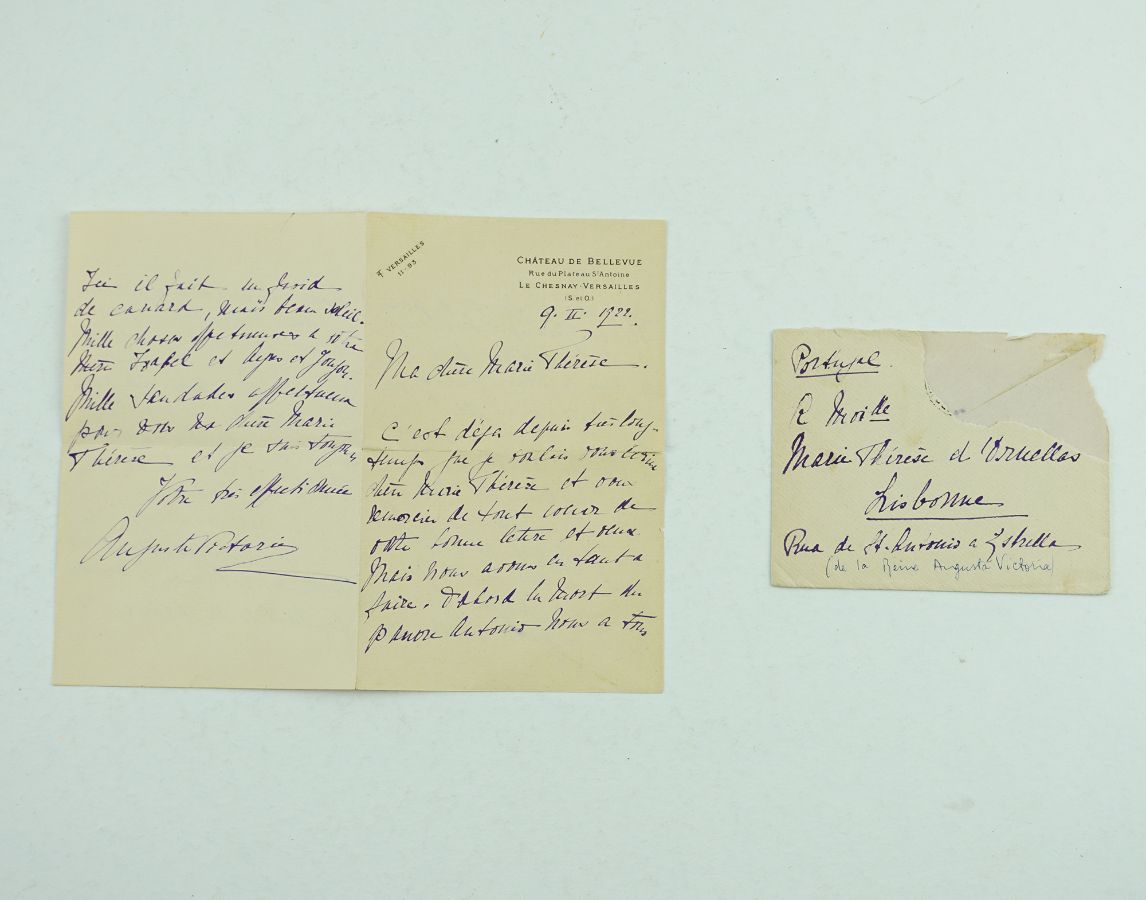 VERSAILLES
11-93
CHÂTEAU DE BELLEVUE
Rue du Plateau St Antoine
LE CHESNAY-VERSAILLES
(S. et O.)
9. II. 1922.
Ma chère Marie Thérèse.
C'est déja depuis très long-
temps que je voulais vous écrire
chère Marie Thérèse et vous
remercier de tout coeur de
votre bonne lettre et
Mais nous avons eu tant a
faire. D'abord la mort du
pauvre Antonio nous a tous
Ici il fait un froid
de canard, mais beau soleil.
Mille choses affectueuses a votre
Mère Isabel et
Mille saudades affectueuses
pour vous ma chère Marie
Thérèse et je suis toujours
Votre très affectionnée
Augusta Victoria
Portugal.
A Moille
Marie Thérèse d'Ornellas
Lisbonne
Rua de St. Antonio a Estrella
(de la Reine Augusta Victoria)